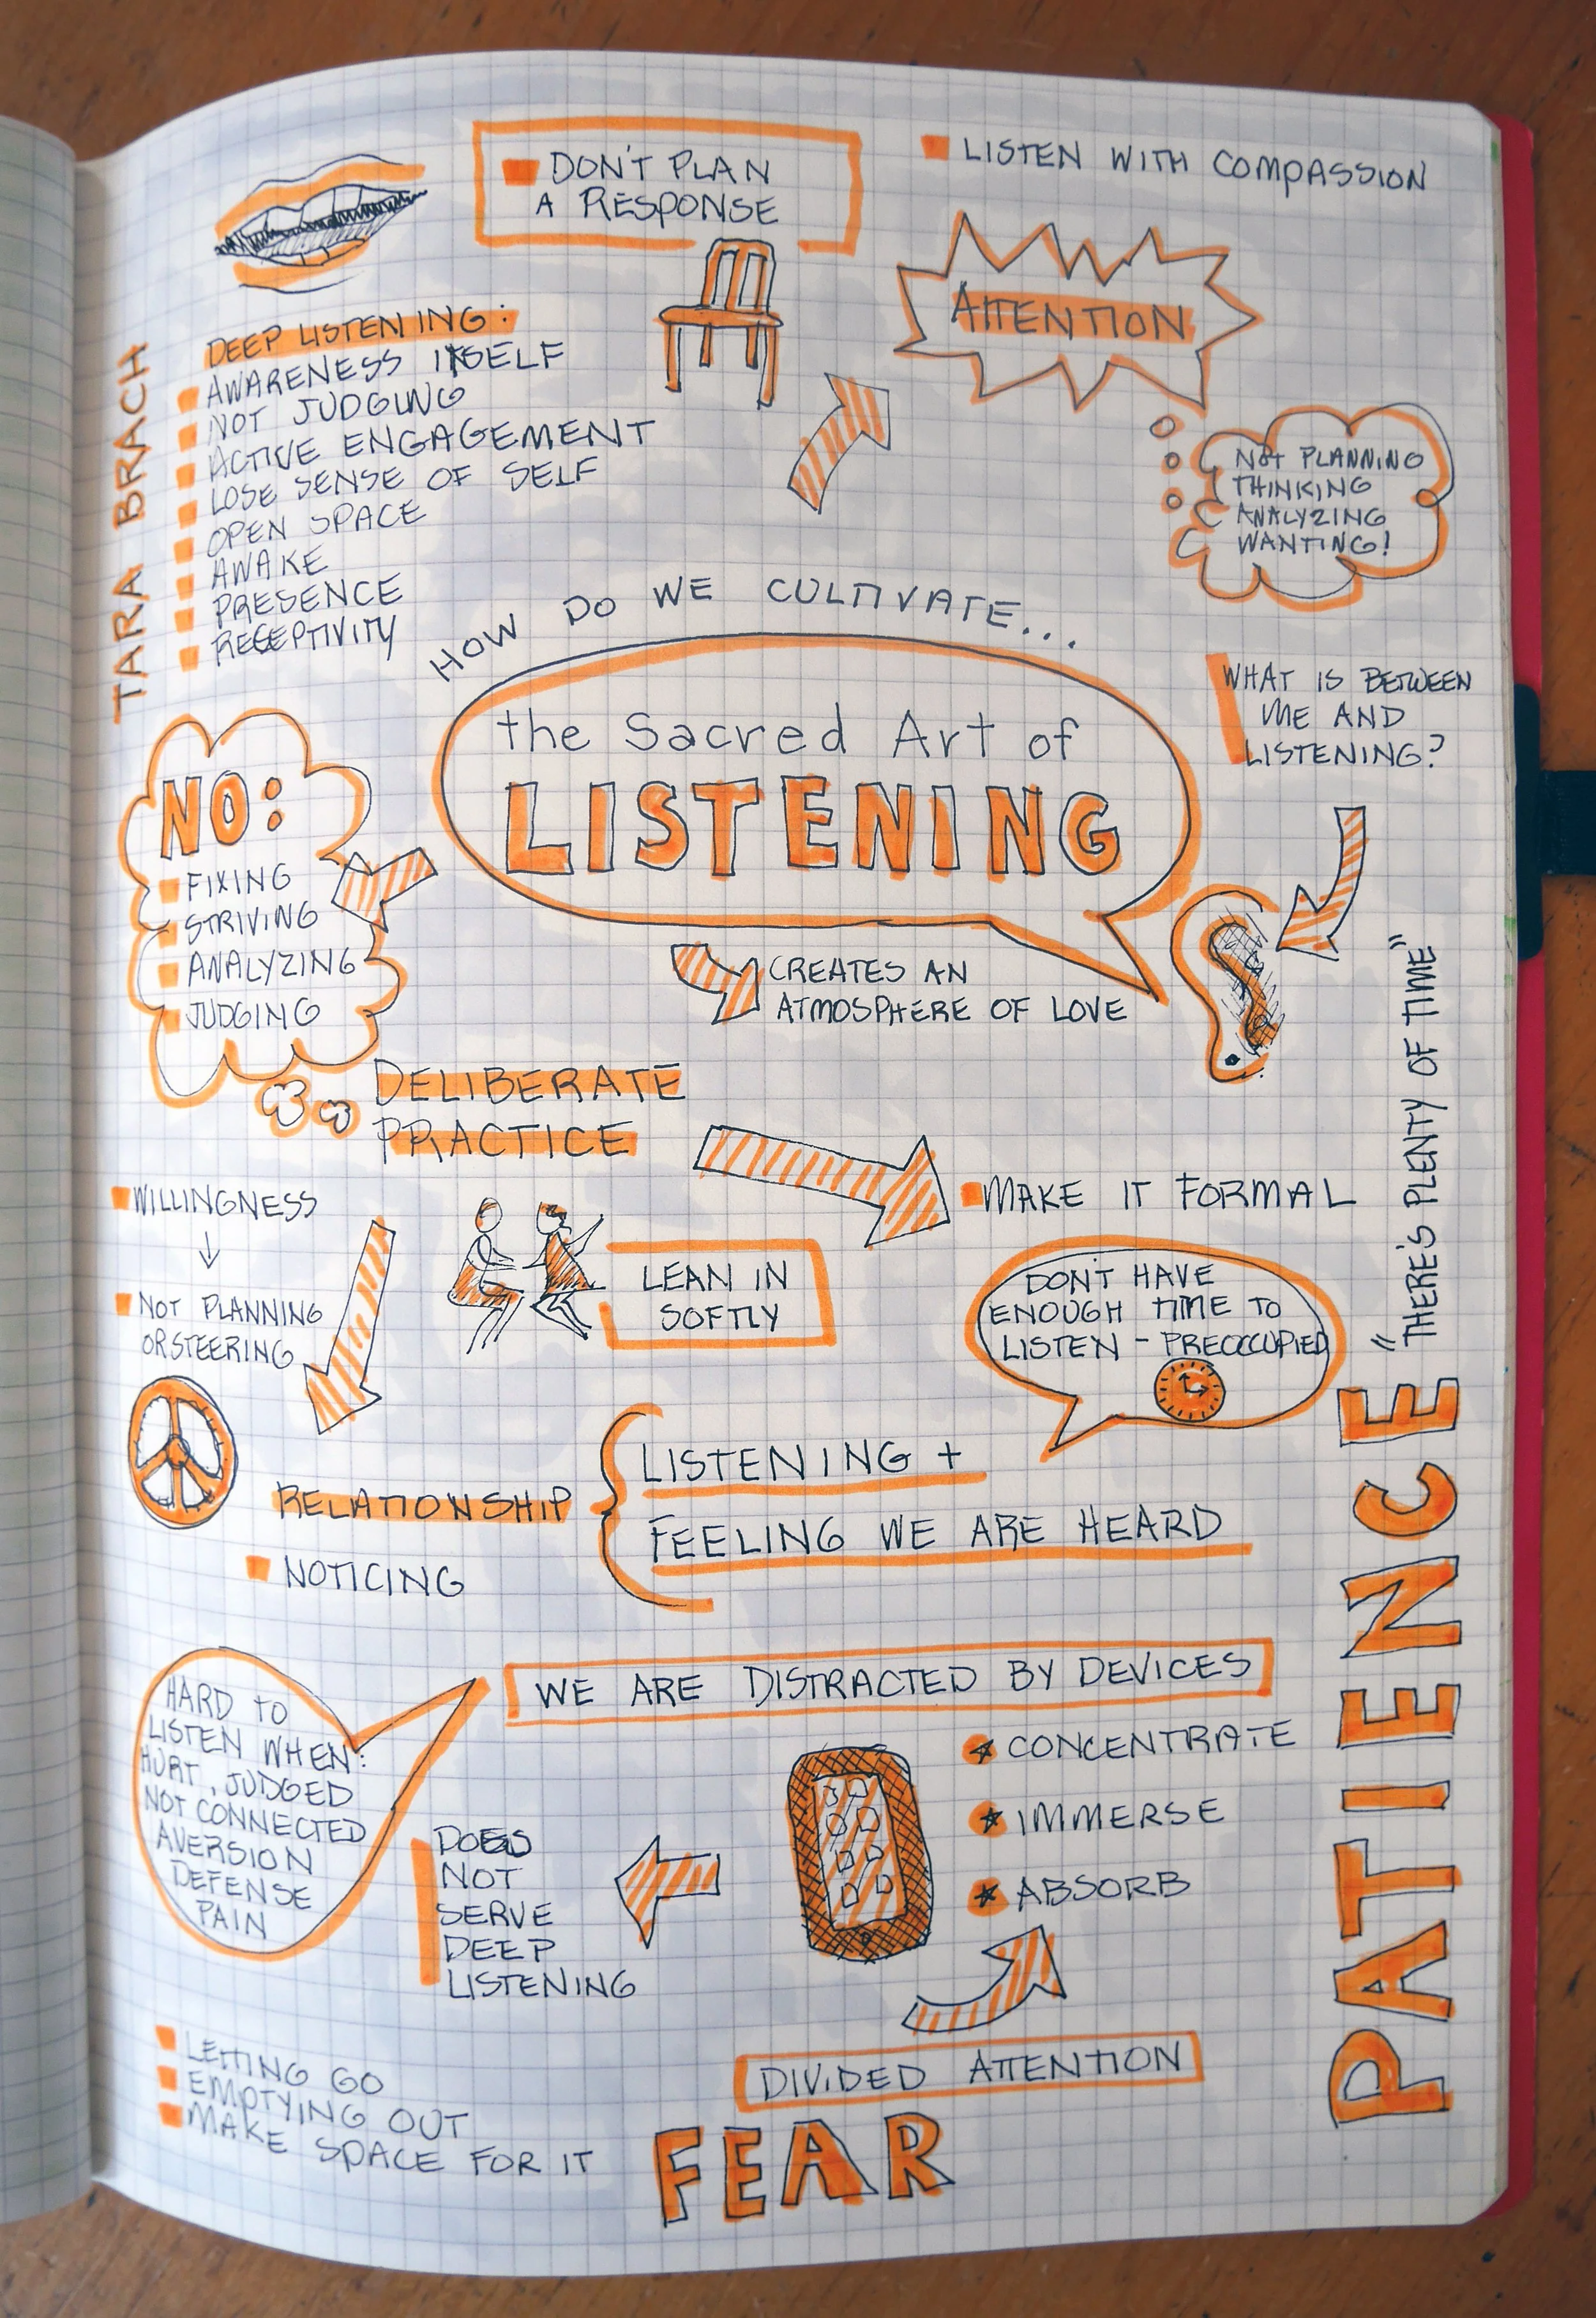 DON'T PLAN
A RESPONSE
LISTEN WITH COMPASSION
ATTENTION
NOT PLANNING
THINKING
ANALYZING
WANTING!
TARA BRACH
DEEP LISTENING:
AWARENESS ITSELF
NOT JUDGING
ACTIVE ENGAGEMENT
LOSE SENSE OF SELF
OPEN SPACE
AWAKE
PRESENCE
RECEPTIVITY
HOW DO WE CULTIVATE...
the Sacred Art of
LISTENING
WHAT IS BETWEEN
ME AND
LISTENING?
NO:
FIXING
STRIVING
ANALYZING
JUDGING
CREATES AN
ATMOSPHERE OF LOVE
DELIBERATE
PRACTICE
MAKE IT FORMAL
WILLINGNESS
NOT PLANNING
OR STEERING
LEAN IN
SOFTLY
DON'T HAVE
ENOUGH TIME TO
LISTEN - PREOCCUPIED
RELATIONSHIP
LISTENING +
FEELING WE ARE HEARD
NOTICING
PATIENCE "THERE'S PLENTY OF TIME"
WE ARE DISTRACTED BY DEVICES
HARD TO
LISTEN WHEN:
HURT, JUDGED
NOT CONNECTED
AVERSION
DEFENSE
PAIN
CONCENTRATE
IMMERSE
ABSORB
DOES
NOT
SERVE
DEEP
LISTENING
DIVIDED ATTENTION
LETTING GO
EMPTYING OUT
MAKE SPACE FOR IT
FEAR